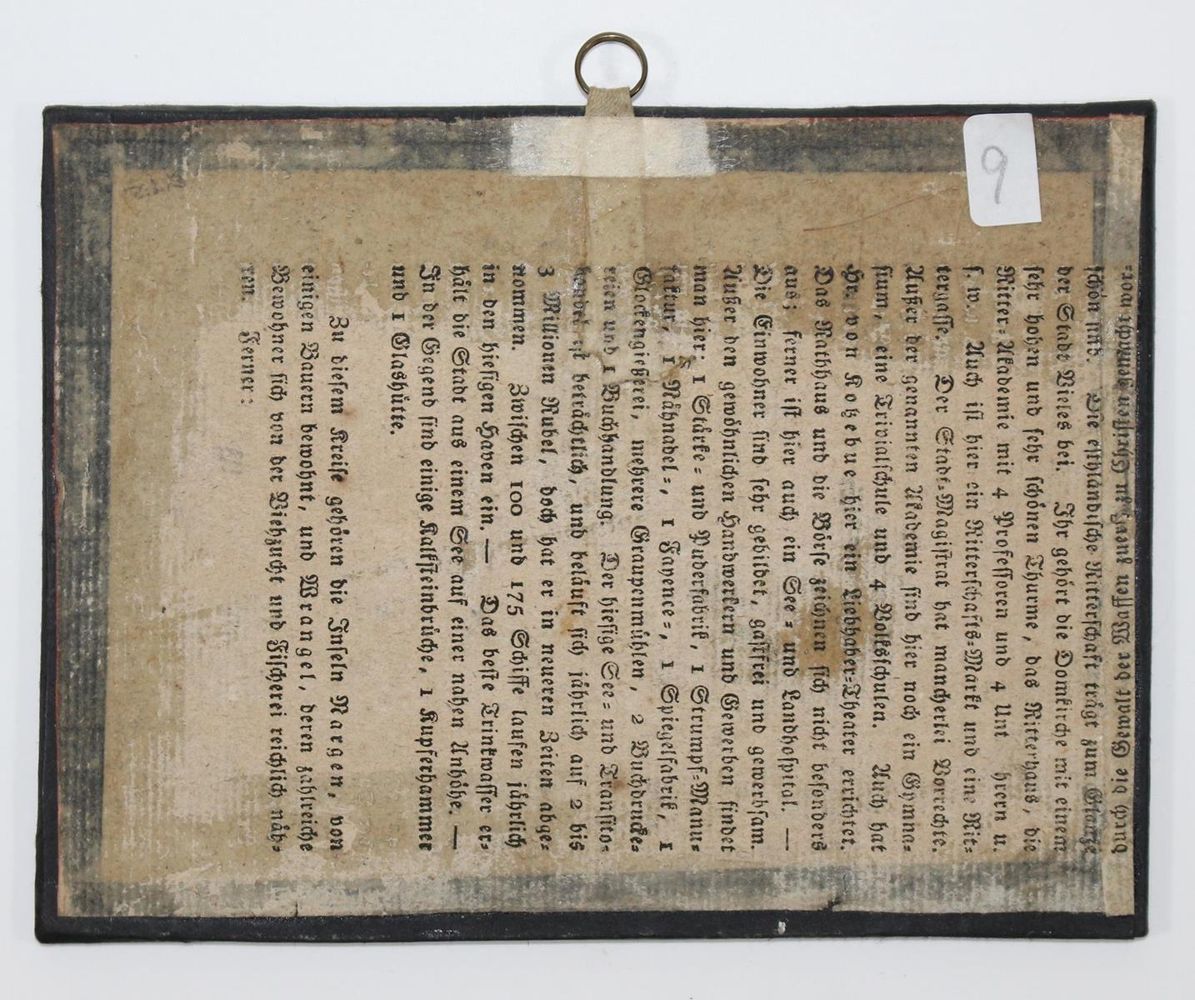 durch die Gewalt der Waffen
schön sind. Die esthländische Ritterschaft trägt zum Glanze
der Stadt Vieles bei. Ihr gehört die Domkirche mit einem
sehr hohen und sehr schönen Thurme, das Ritterhaus, die
Ritter-Akademie mit 4 Professoren und 4 Unt hrern u.
s. w. Auch ist hier ein Ritterschafts-Markt und eine Rit-
tergasse. Der Stadt-Magistrat hat mancherlei Vorrechte.
Außer der genannten Akademie sind hier noch ein Gymna-
sium, eine Trivialschule und 4 Volksschulen. Auch hat
Hr. von Kotzebue hier ein Liebhaber-Theater errichtet.
Das Rathhaus und die Börse zeichnen sich nicht besonders
aus; ferner ist hier auch ein See- und Landhospital. —
Die Einwohner sind sehr gebildet, gastfrei und gewerbsam.
Außer den gewöhnlichen Handwerkern und Gewerben findet
man hier: 1 Stärke- und Puderfabrik, 1 Strumpf-Manu-
faktur, 1 Nähnadel-, 1 Fayence-, 1 Spiegelfabrik, 1
Glockengießerei, mehrere Graupenmühlen, 2 Buchdrucke-
reien und 1 Buchhandlung. Der hiesige See- und Transito-
handel ist beträchtlich, und beläuft sich jährlich auf 2 bis
3 Millionen Rubel, doch hat er in neueren Zeiten abge-
nommen. Zwischen 100 und 175 Schiffe laufen jährlich
in den hiesigen Haven ein. — Das beste Trinkwasser er-
hält die Stadt aus einem See auf einer nahen Anhöhe. —
In der Gegend sind einige Kalksteinbrüche, 1 Kupferhammer
und 1 Glashütte.
Zu diesem Kreise gehören die Inseln Nargen, von
einigen Bauern bewohnt, und Wrangel, deren zahlreiche
Bewohner sich von der Viehzucht und Fischerei reichlich näh-
ren.
Ferner:
9